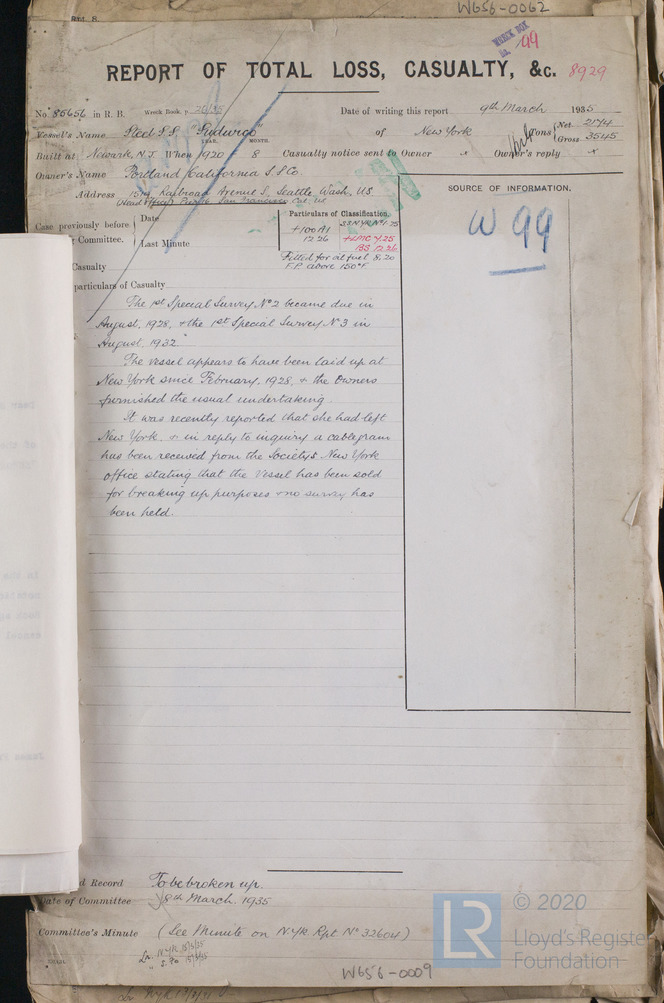 W656-0062
Rpt. 8.
WRECK BOX
No. 99
REPORT OF TOTAL LOSS, CASUALTY, &c. 8929
No. 85656 in R. B. Wreck Book, p. 26/35 Date of writing this report 9th March 1935
Vessel's Name Steel S.S. of New York Tons { Net 2174 Gross 3545
YEAR. MONTH.
Built at Newark, N.J. When 1920 8 Casualty notice sent to Owner x Owner's reply x
Owner's Name Portland California S.S. Co.
Address Railroad Avenue S. Seattle, Wash., U.S.
(Head Office) San Francisco, Cal. US
SOURCE OF INFORMATION.
W 99
Case previously before Committee. { Date
Last Minute
Particulars of Classification.
+100A1
12.26
SSNYKNo1-25
+LMC 4.25
BS 12.26
Fitted for oil fuel 8.20
F.P. above 150°F.
Casualty
particulars of Casualty
The 1st Special Survey No 2 became due in
August, 1928, & the 1st Special Survey No 3 in
August, 1932.
The vessel appears to have been laid up at
New York since February, 1928, & the Owners
furnished the usual undertaking.
It was recently reported that she had left
New York & in reply to inquiry a cablegram
has been received from the Society's New York
office stating that the vessel has been sold
for breaking up purposes & no survey has
been held.
d Record To be broken up.
Date of Committee 8th March, 1935
Committee's Minute (See Minute on N.Yk. Rpt No 32604)
W656-0009
LR
© 2020
Lloyd's Register
Foundation